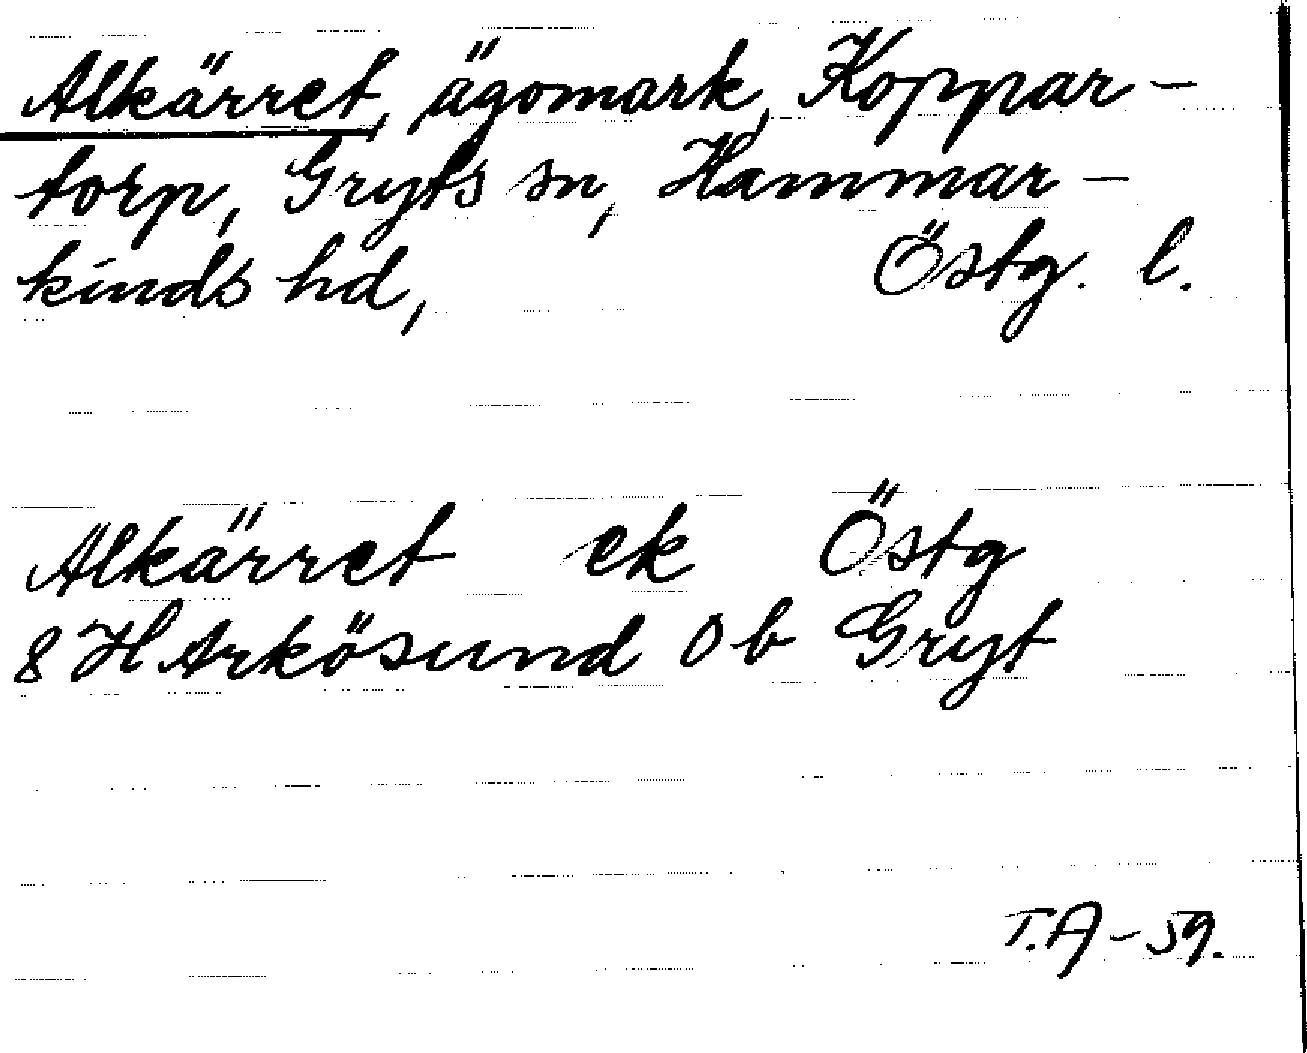 Alkärret, ägomark, Koppar-
torp, Gryts sn, Hammar-
kinds hd, Östg. l.
Alkärret ek Östg
8 H Arkösund 0 b Gryt
T.A-59.